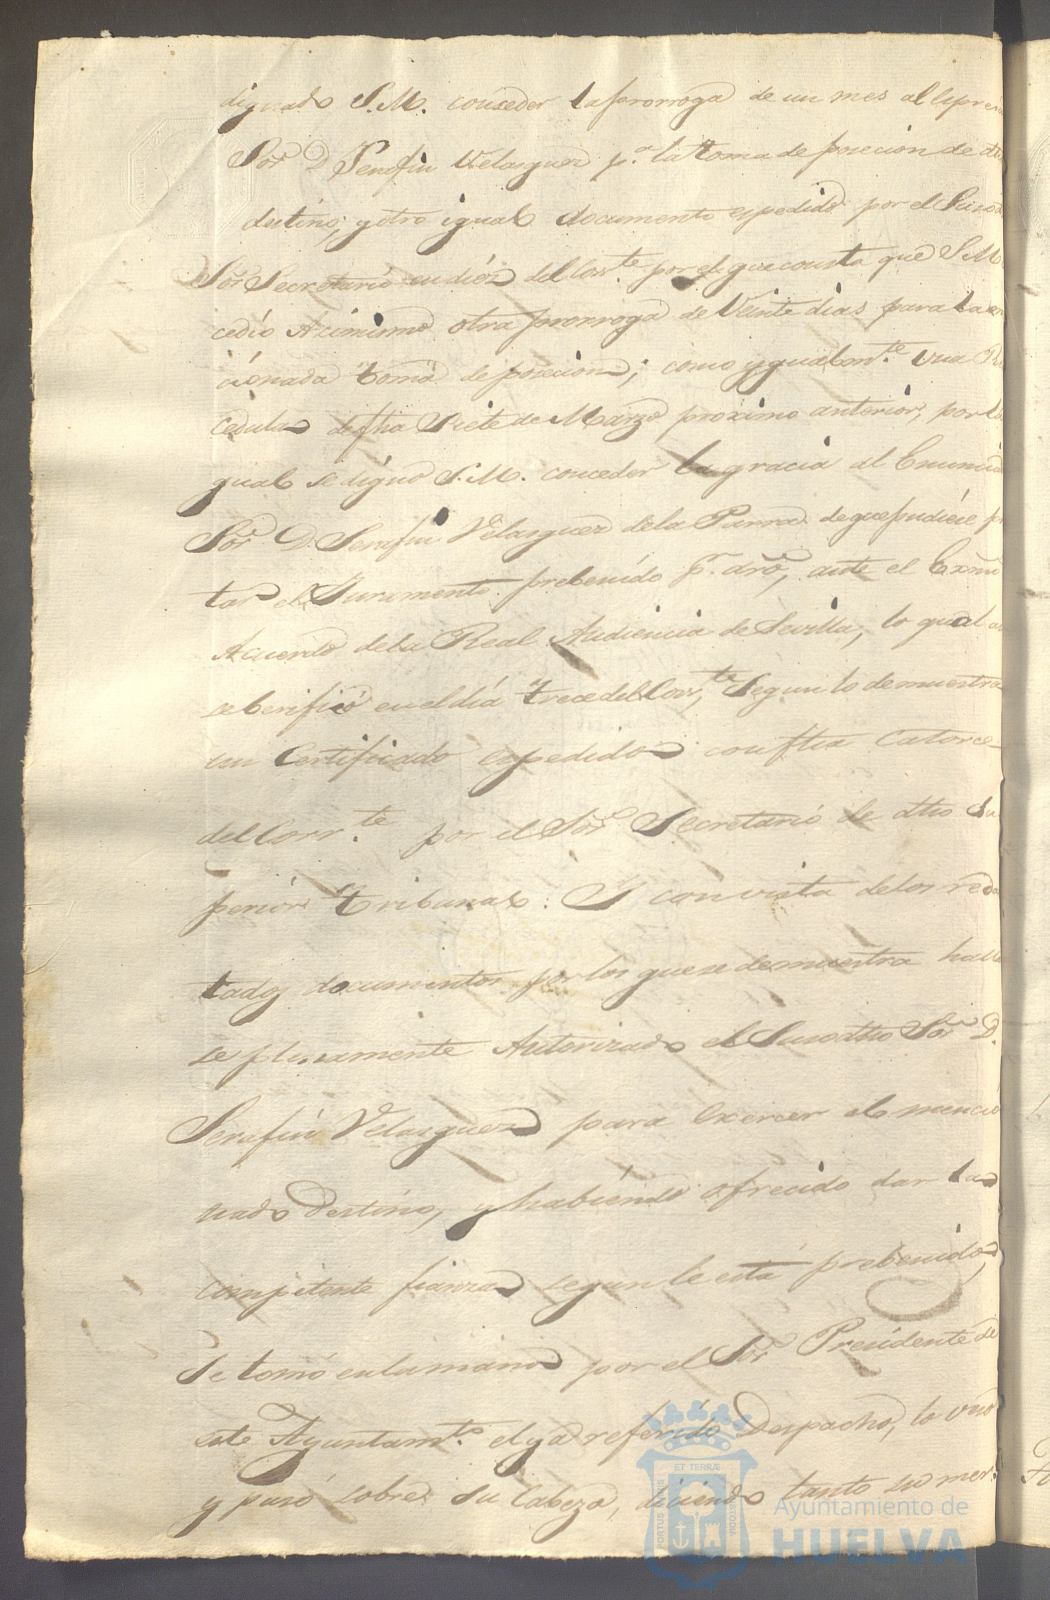 dignado S.M. conceder la prorroga de un mes al espre
Sor. D. Serafin Velasquez p.a la toma de posecion de dho
destino; y otro igual documento espedido por el Susod
Sor. Secretario en dióz del Corr.te por el que consta que S.M.
cedió Acimismo otra prorroga de Veinte dias para la
cionada toma de posecion; como ygualm.te una Rl
Cedula de fha Siete de Marzo proximo anterior, por la
qual se dignó S.M. conceder la gracia al Enuncia
Sor. D. Serafin Velasquez de la Parra de que pudiése p
tar el Juramento prebenido p.r dro, ante el Exmo
Acuerdo de la Real Audiencia de Sevilla, lo qual
se berificó en el día trece del Corr.te Segun lo demuestra
un Certificado espedido con fha Catorce
del Corr.te por el Sor. Secretario de dho Su
perior tribunal. Y con vista de los rela
tados documentos por los que se demuestra halla
se plenamente Autorizado el Susodho Sor. D.
Serafin Velasquez para Exercer el mencio
nado Destino, y habiendo ofrecido dar la
competente fianza segun le está prebenido,
Se tomó en la mano por el Sor. Presidente de
este Ayuntam.to el ya referido Despacho, lo vesó
y puso sobre su Cabeza, diciendo tanto su mer.
PORTUS
ET TERRÆ
CUSTODIA
Ayuntamiento de
HUELVA